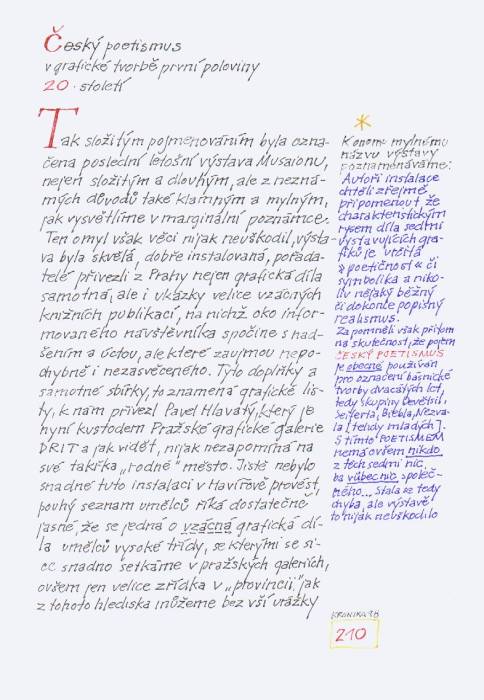 Český poetismus
v grafické tvorbě první poloviny
20. století
Tak složitým pojmenováním byla ozna-
čena poslední letošní výstava Musaionu,
nejen složitým a dlouhým, ale z nezná-
mých důvodů také klamným a mylným,
jak vysvětlíme v marginální poznámce.
Ten omyl však věci nijak neuškodil, výsta-
va byla skvělá, dobře instalovaná, pořada-
telé přivezli z Prahy nejen grafická díla
samotná, ale i ukázky velice vzácných
knižních publikací, na nichž oko infor-
movaného návštěvníka spočine s nad-
šením a úctou, ale které zaujmou nepo-
chybně i nezasvěceného. Tyto doplňky a
samotné sbírky, to znamená grafické lis-
ty, k nám přivezl Pavel Hlavatý, který je
nyní kustodem Pražské grafické galerie
DRITA jak vidět, nijak nezapomíná na
své takřka „rodné" město. Jistě nebylo
snadné tuto instalaci v Havířově provést,
pouhý seznam umělců říká dostatečně
jasně, že se jedná o vzácná grafická dí-
la umělců vysoké třídy, se kterými se si-
ce snadno setkáme v pražských galeriích,
ovšem jen velice zřídka v „provincii," jak
z tohoto hlediska můžeme bez vší urážky
*
K onomu mylnému
názvu výstavy
poznamenáváme:
Autoři instalace
chtěli zřejmě
připomenout, že
charakteristickým
rysem díla sedmi
vystavujících gra-
fiků je určitá
„poetičnost" či
symbolika a niko-
liv nějaký běžný
či dokonce popisný
realismus.
Zapomněli však přitom
na skutečnost, že pojem
ČESKÝ POETISMUS
je obecně používán
pro označení básnické
tvorby dvacátých let,
tedy skupiny Devětsil
Seiferta, Biebla, Nezva-
la (tehdy mladých).
S tímto POETISMEM
nemá ovšem nikdo
z těch sedmi nic,
ba vůbec nic společ-
ného... Stala se tedy
chyba, ale výstavě
to nijak neuškodilo
KRONIKA 98
210